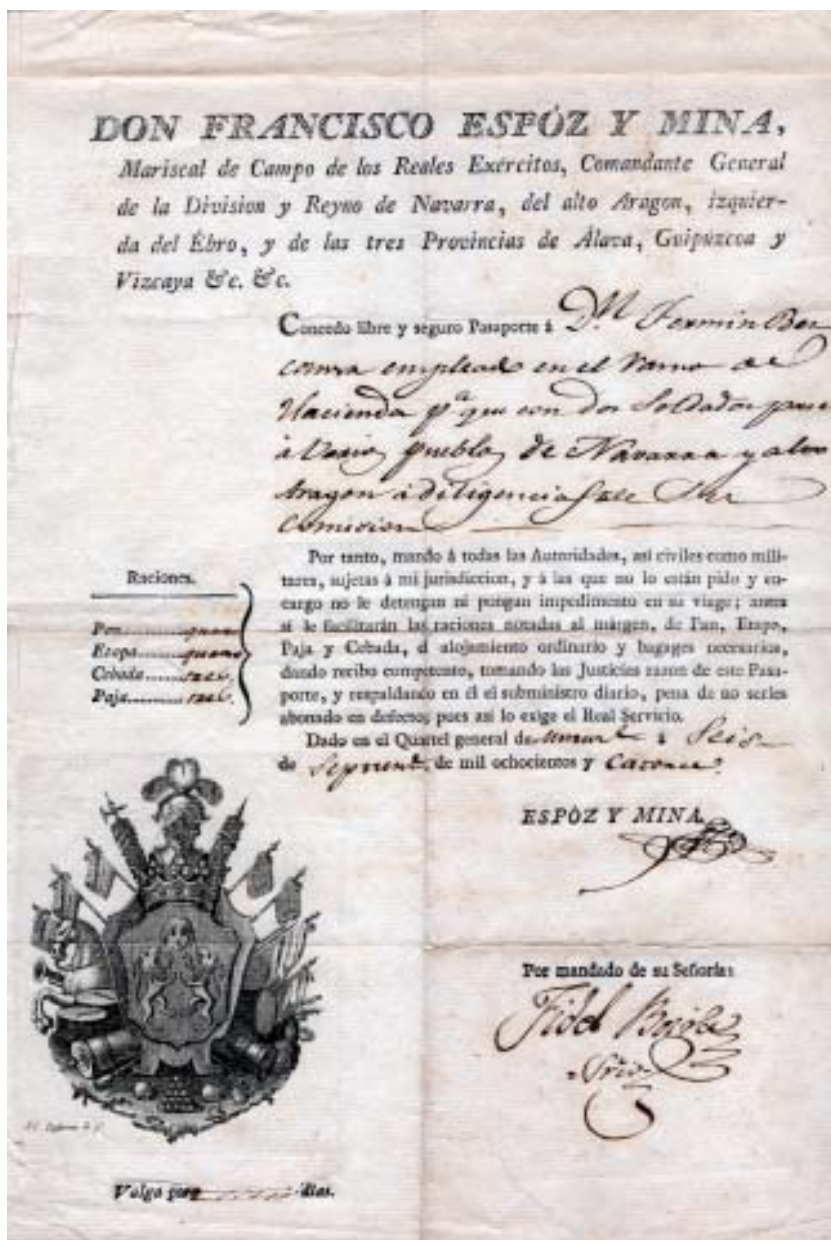 DON FRANCISCO ESPÓZ Y MINA,
Mariscal de Campo de los Reales Exércitos, Comandante General
de la Division y Reyno de Navarra, del alto Aragon, izquier-
da del Ébro, y de las tres Provincias de Álava, Guipúzcoa y
Vizcaya &c. &c.
Concedo libre y seguro Pasaporte á D.n Fermin
empleado en el Ramo de
Hacienda p.a que con dos Soldados pase
á varios pueblos de Navarra y alto
Aragon á diligencias de su
Comision
Raciones.
Pan
Etapa
Cebada tres.
Paja tres.
Por tanto, mando á todas las Autoridades, asi civiles como mili-
tares, sujetas á mi jurisdiccion, y á las que no lo están pido y en-
cargo no le detengan ni pongan impedimento en su viage; antes
si le facilitarán las raciones notadas al márgen, de Pan, Etapa,
Paja y Cebada, el alojamiento ordinario y bagages necesarios,
dando recibo competente, tomando las Justicias razon de este Pasa-
porte, y respaldando en él el subministro diario, pena de no serles
abonado en defecto; pues asi lo exige el Real Servicio.
Dado en el Quartel general de á Seis
de de mil ochocientos y Catorce.
ESPÓZ Y MINA
Por mandado de su Señoría:
Fidel
Srio.
Valga por dias.